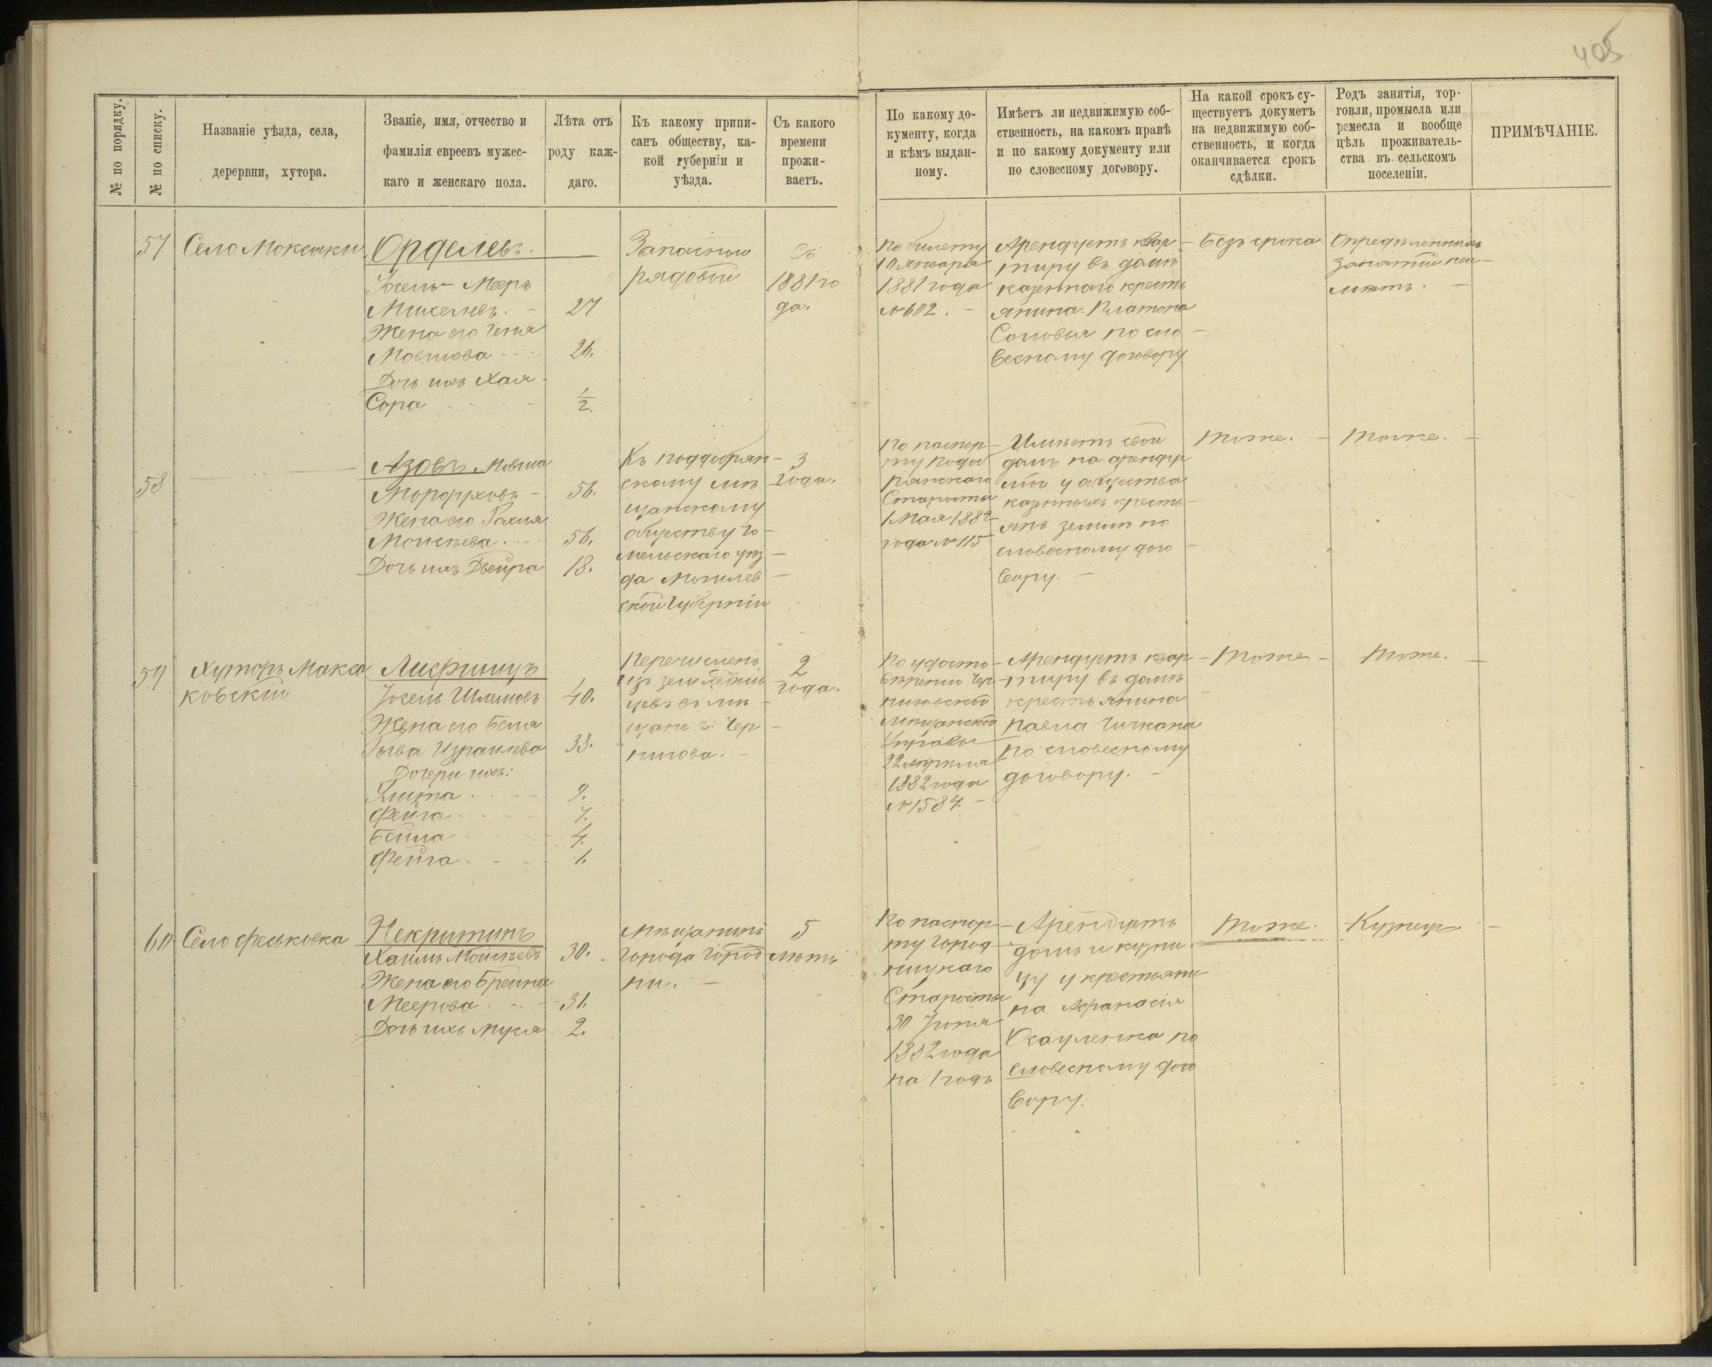 405
№ по порядку.
№ по списку.
Названіе уѣзда, села,
дерервни, хутора.
Званіе, имя, отчество и
фамилія евреевъ мужес-
каго и женскаго пола.
Лѣта отъ
роду каж-
даго.
Къ какому припи-
санъ обществу, ка-
кой губерніи и
уѣзда.
Съ какого
времени
прожи-
ваетъ.
По какому до-
кументу, когда
и кѣмъ выдан-
ному.
Имѣетъ ли недвижимую соб-
ственность, на какомъ правѣ
и по какому документу или
по словесному договору.
На какой срокъ су-
ществуетъ докуметъ
на недвижимую соб-
ственность, и когда
оканчивается срокъ
сдѣлки.
Родъ занятія, тор-
говли, промысла или
ремесла и вообще
цѣль проживатель-
ства въ сельскомъ
поселеніи.
ПРИМѢЧАНІЕ.
57
Село Мокошки
Орделевъ.
Іосель-Мееръ
Михелевъ. 27
Жена его Геня
Мовшова 26.
Дочь ихъ Хая-
Сора 1/2.
Запасный
рядовой
Съ
1881 го
да.
По билету
10 Января
1881 года
№ 602.
Арендуетъ квар-
тиру въ домѣ
казеннаго кресть
янина Платона
Соловья по сло-
весному договору
Безъ срока
Опредѣленныхъ
занятій неи-
мѣетъ.
58
Азовъ Мовша
Мордуховъ 56.
Жена его Рахля
Моисѣева 56.
Дочь ихъ Двейра 18.
Къ поддобрян-
скому мѣ
щанскому
обществу Го-
мельскаго уѣз-
да Могилев-
ской Губерніи
3
года.
По паспор-
ту Поддоб
рянскаго
Старосты
1 Мая 1882
года № 115
Имѣетъ свой
домъ на арендуе
мой у общества
казенныхъ кресть-
янъ земли по
словесному дого-
вору.
Тоже.
Тоже.
59
Хуторъ Макса
ковскій
Лифшицъ
Іосель Шлемовъ 40.
Жена его Бейля
Рыва Израилева 38.
Дочери ихъ:
Злата 9.
Фейга 7.
Бейла 4.
Фейга 1.
Перечисленъ
изъ земледѣль
цевъ въ мѣ-
щане г. Чер-
нигова.
2
года.
По удосто-
вѣренію Чер-
ниговской
Мѣщанской
Управы
22 Апрѣля
1882 года
№ 1584.
Арендуетъ квар-
тиру въ домѣ
крестьянина
Павла Чичкана
по словесному
договору.
Тоже
Тоже.
60
Село Феськовка
Некритинъ
Хаимъ Моисѣевъ 30.
Жена его Брейна
Меерова 31.
Дочь ихъ Муся 2.
Мѣщанинъ
города Город
ни.
5
лѣтъ
По паспор-
ту Город
ницкаго
Старосты
30 Іюня
1882 года
на 1 годъ
Арендуетъ
домъ и кузни
цу у крестьяни
на Афанасія
Осауленка по
словесному дого
вору.
Тоже.
Кузнецъ